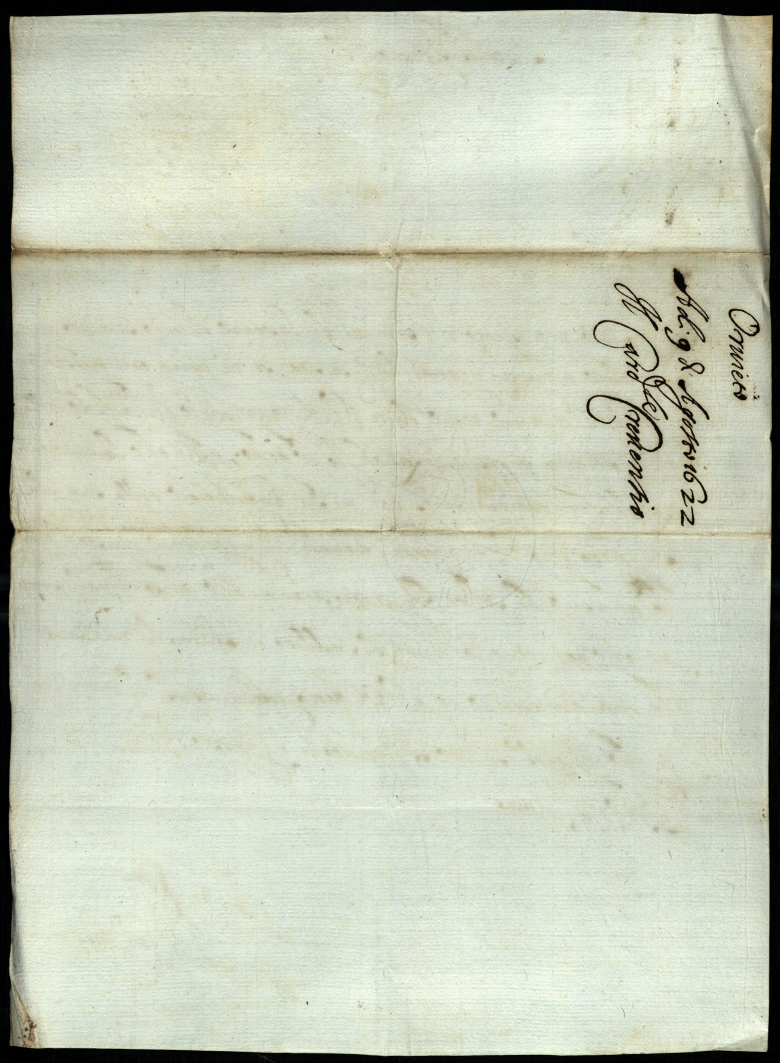 Oruieto
Adi 9 d' Agosto 1622
Il Card.le Crescentio